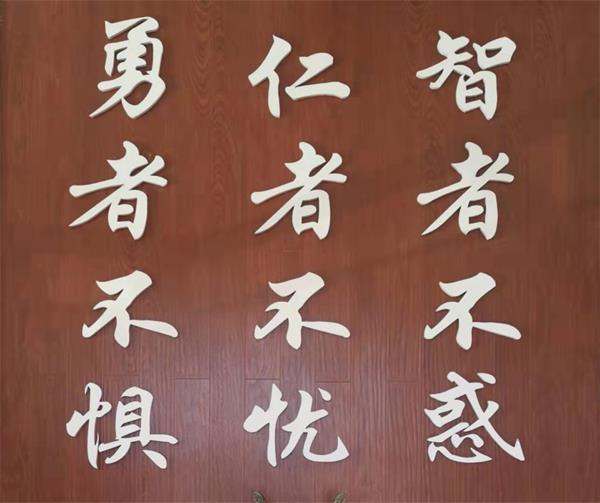 智者不惑
仁者不忧
勇者不惧